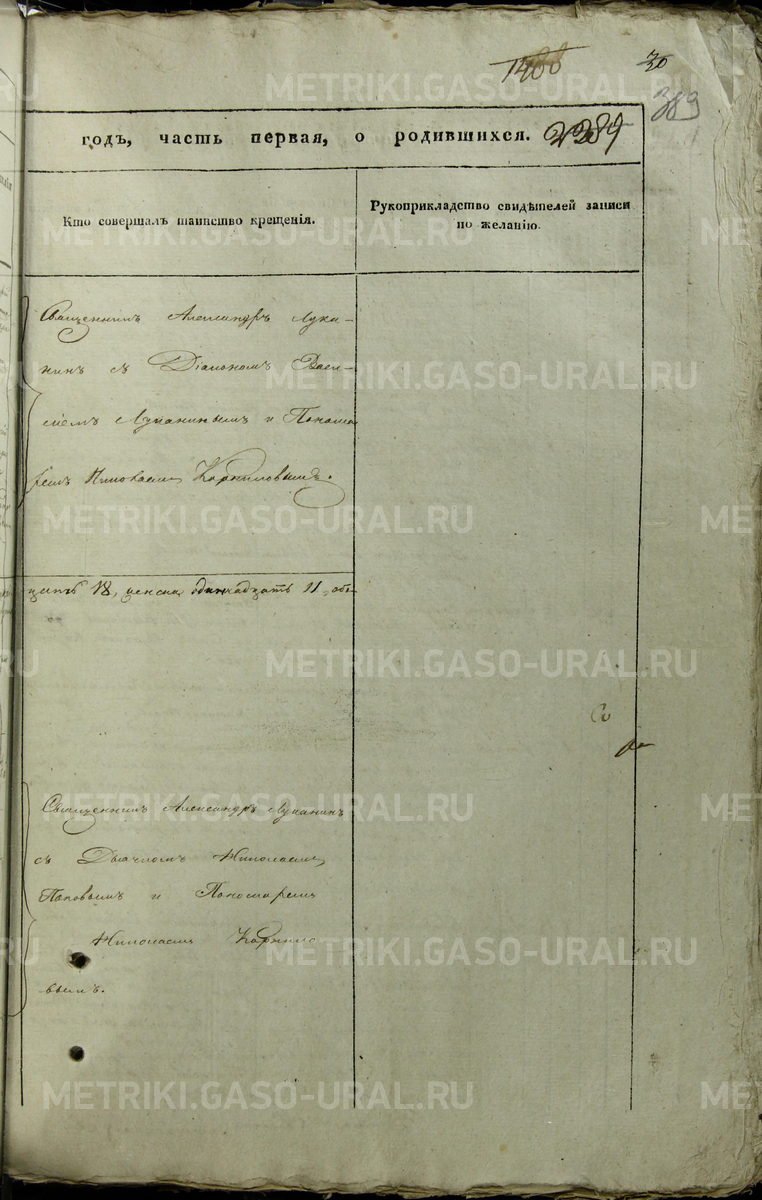 1488
30
389
годъ, часть первая, о родившихся. 2389
Кто совершалъ таинство крещенія.
Рукоприкладство свидѣтелей записи
по желанію.
Священникъ Александръ Лука-
нинъ съ Діакономъ Васи-
ліемъ Луканинымъ и Понома
ремъ Николаемъ Корниловымъ.
цать 18, женска одиннадцать 11, обо-
Священникъ Александръ Луканинъ
съ Дьячкомъ Николаемъ
Поповымъ и Пономаремъ
Николаемъ Корнило
вымъ.
METRIKI.GASO-URAL.RU